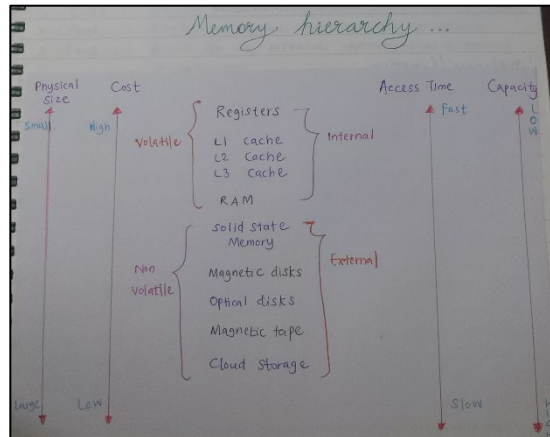 Memory hierarchy ...
Physical Size
Cost
Access Time
Capacity
Small
High
fast
LOW
Volatile
Registers
L1 cache
L2 cache
L3 cache
RAM
Internal
Non Volatile
Solid state
Memory
Magnetic disks
Optical disks
Magnetic tape
Cloud Storage
External
Large
Low
Slow